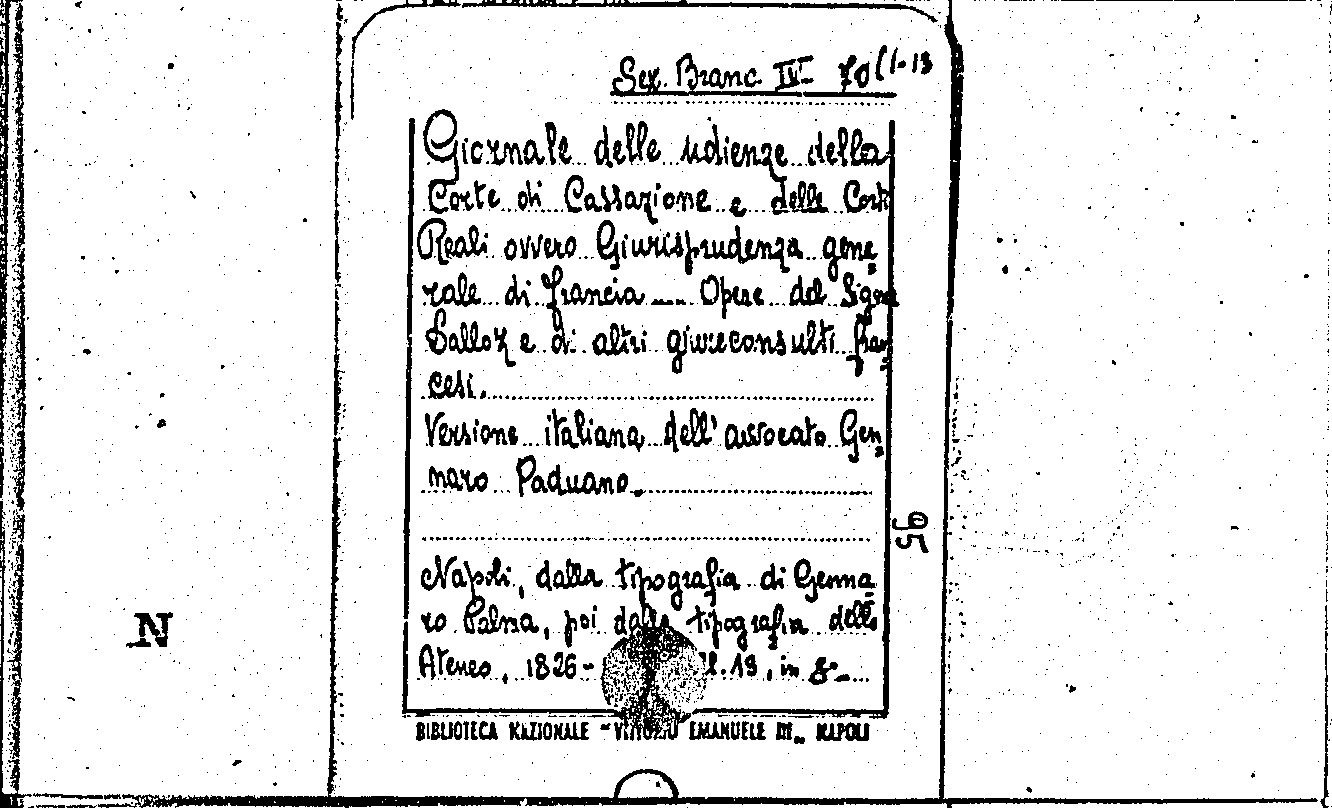 Sez. Branc. IV 70 (1-13
Giornale delle udienze della
Corte di Cassazione e delle Corti
Reali ovvero Giurisprudenza gene=
rale di Francia .... Opere del Signor
Dalloz e di altri giureconsulti fran=
cesi.
Versione italiana dell' avvocato Gen=
naro Paduano.
56
Napoli, dalla tipografia di Genna=
ro Palma, poi dalla tipografia dello
Ateneo, 1826- 13, in 8°
N
BIBLIOTECA NAZIONALE - VITTORIO EMANUELE III - NAPOLI